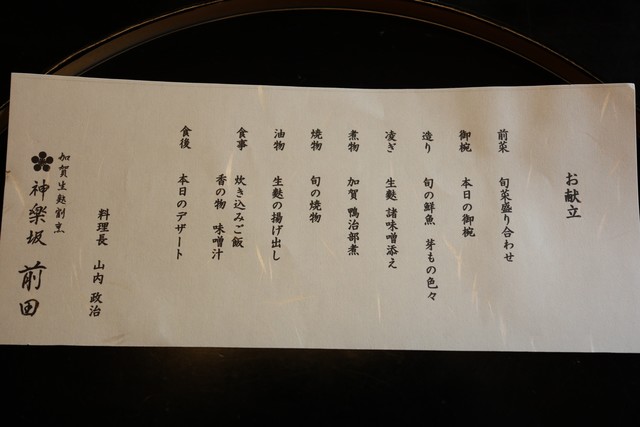 お献立
前菜 旬菜盛り合わせ
御椀 本日の御椀
造り 旬の鮮魚 芽もの色々
凌ぎ 生麩 諸味噌添え
煮物 加賀 鴨治部煮
焼物 旬の焼物
油物 生麩の揚げ出し
食事 炊き込みご飯
香の物 味噌汁
食後 本日のデザート
料理長 山内 政治
加賀生麩割烹
神楽坂 前田